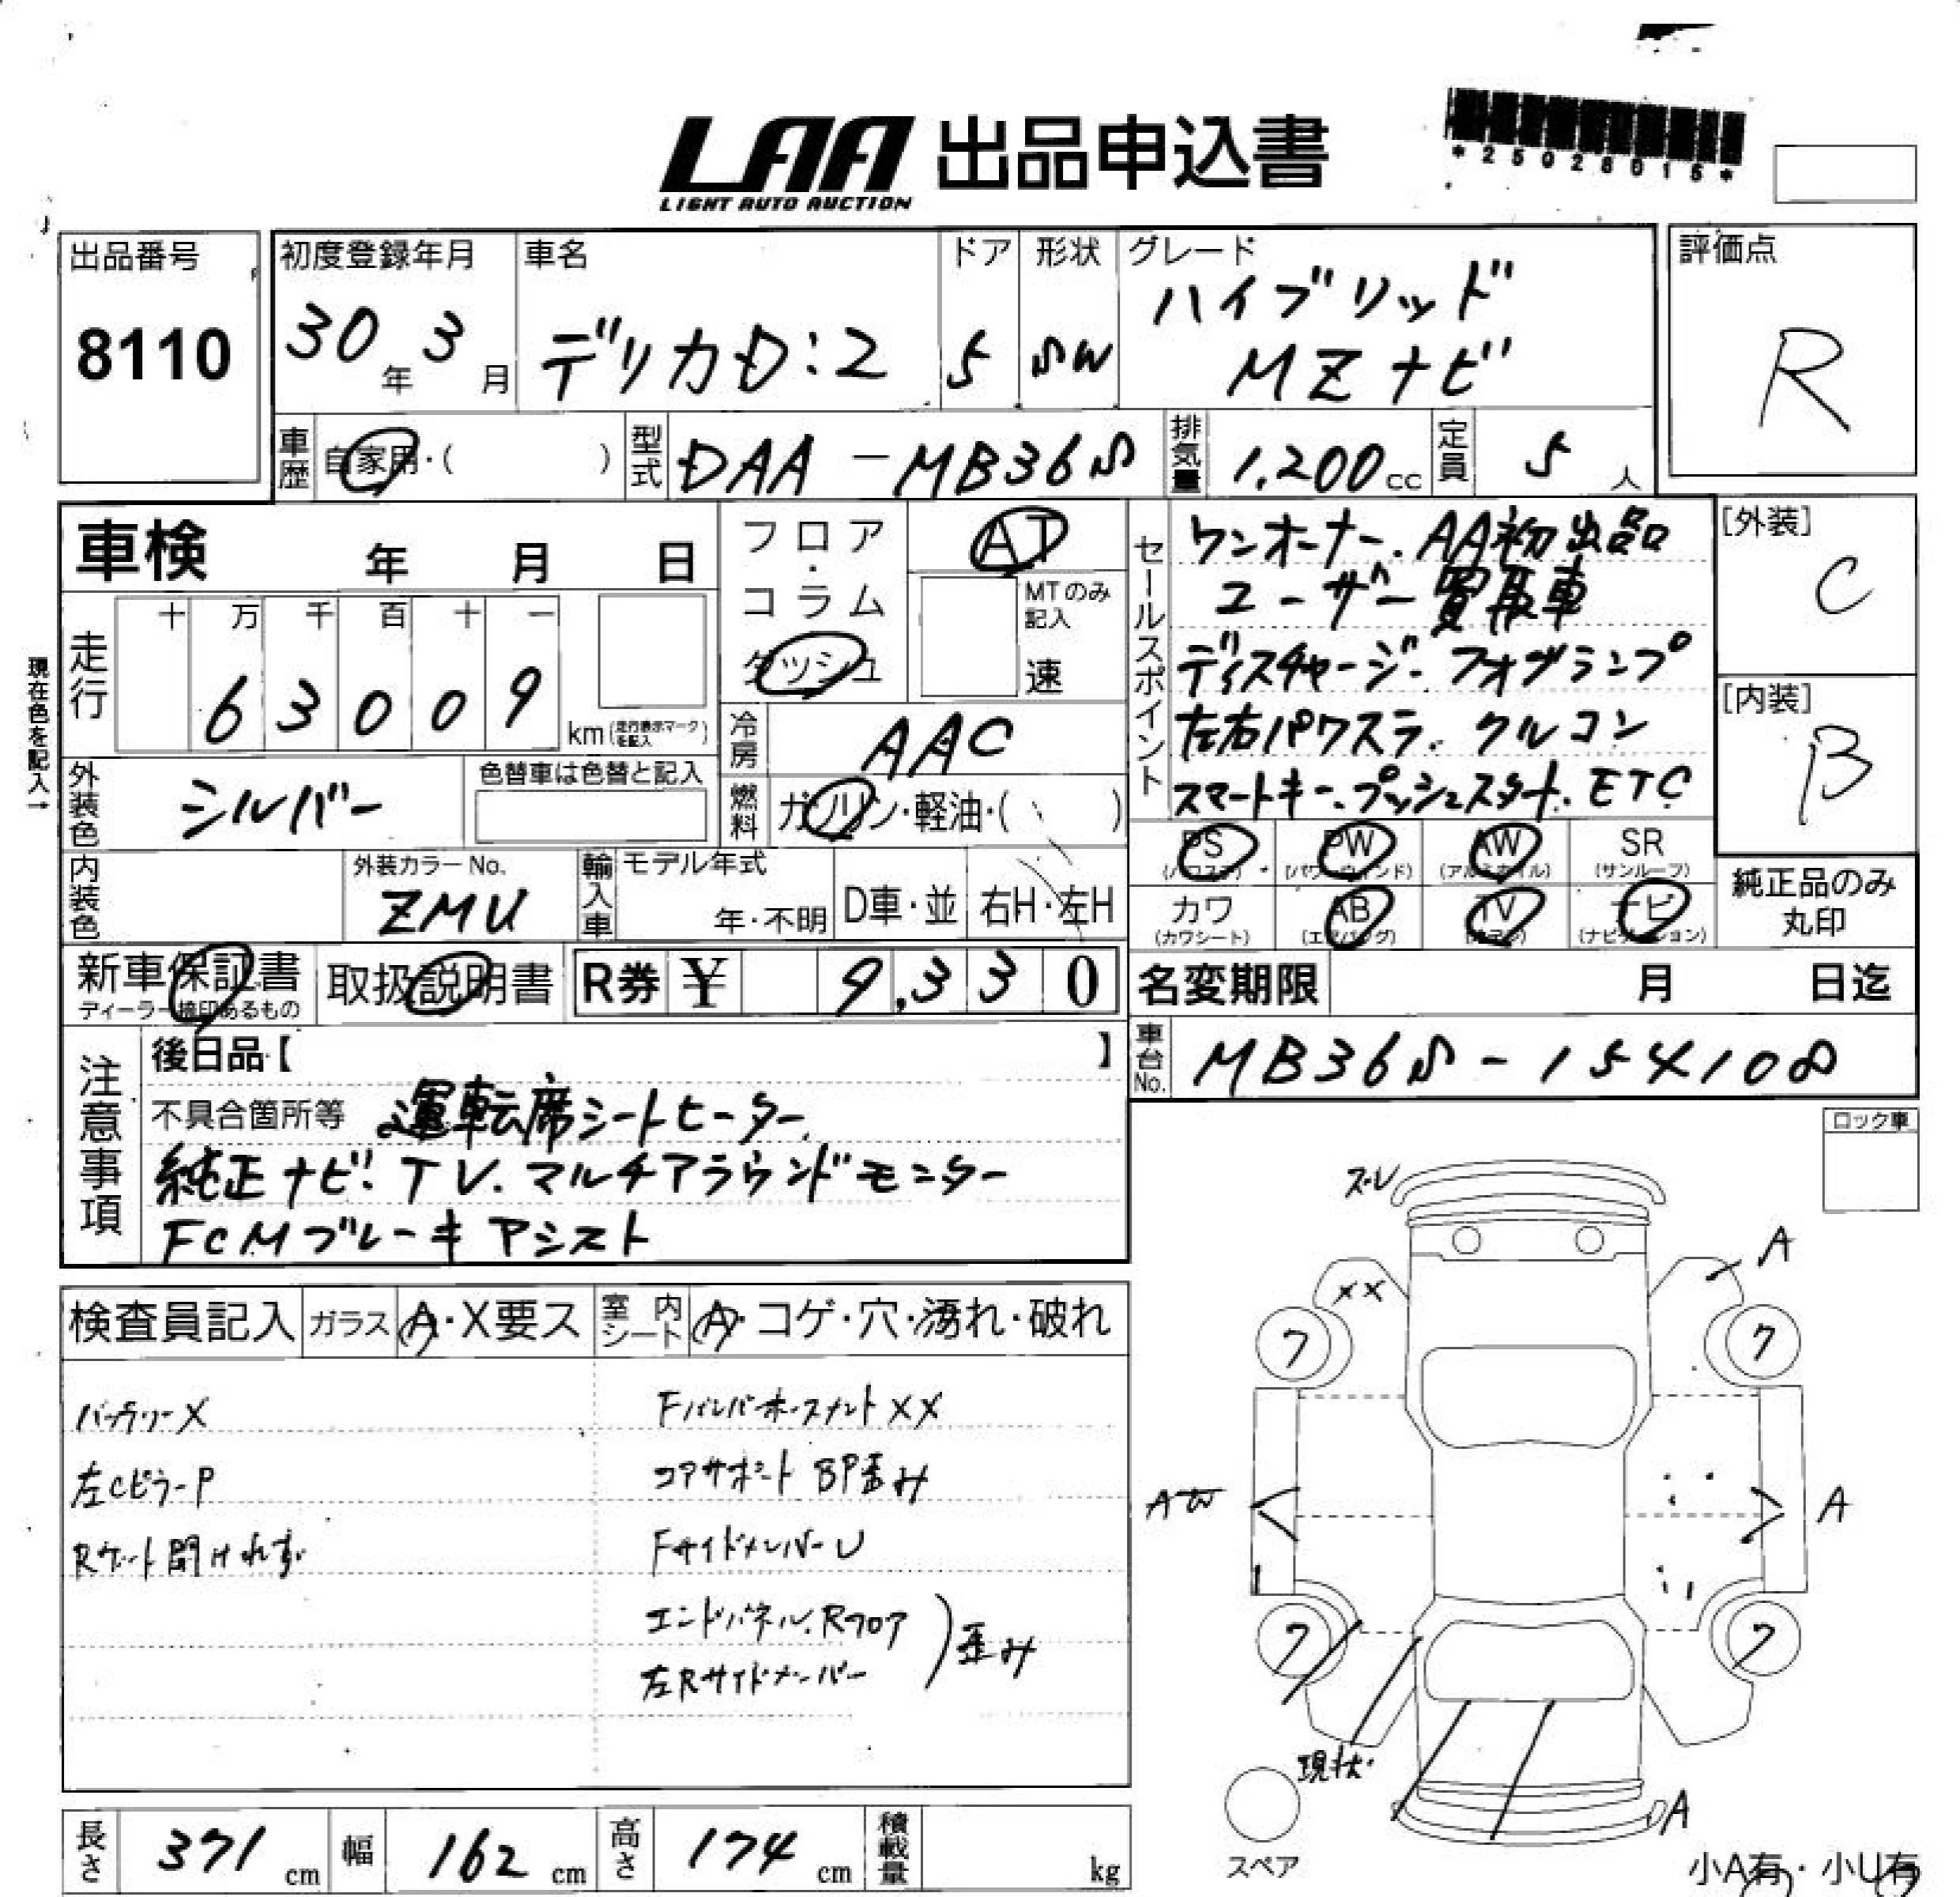 LAA 出品申込書
LIGHT AUTO AUCTION
*25028015*
出品番号
8110
初度登録年月
30年3月
車名
デリカD:2
ドア
5
形状
SW
グレード
ハイブリッド
MZナビ
評価点
R
車歴 自家用・( )
型式 DAA-MB36S
排気量 1,200cc
定員 5人
車検 年 月 日
フロア・コラム
ダッシュ
AT
MTのみ記入
速
セールスポイント
ワンオーナー. AA初出品
ユーザー買取車
ディスチャージ. フォグランプ
左右パワスラ. クルコン
スマートキー. プッシュスタート. ETC
[外装]
C
[内装]
B
現在色を記入→
走行
十 万 千 百 十 一
6 3 0 0 9
km(走行表示マークを記入)
冷房 AAC
外装色 シルバー
色替車は色替と記入
燃料 ガソリン・軽油・( )
PS PW AW SR
(パワステ) (パワーウインド) (アルミホイル) (サンルーフ)
カワ AB TV ナビ
(カワシート) (エアバッグ) (ナビゲーション)
純正品のみ
丸印
内装色
外装カラーNo.
ZMU
輸入車
モデル年式
年・不明
D車・並
右H・左H
新車保証書
ディーラー捺印あるもの
取扱説明書
R券 ¥ 9,330
名変期限 月 日迄
車台No. MB36S-154108
注意事項
後日品【 】
不具合箇所等 運転席シートヒーター.
純正ナビ. TV. マルチアラウンドモニター
FCMブレーキアシスト
ロック車
検査員記入 ガラス A・X要ス 室内シート A・コゲ・穴・濡れ・破れ
バッテリーX
左CピラーP
Rゲート開けれず
Fバンパーホースメント XX
コアサポート BP歪み
FサイドメンバーU
エンドパネル. Rフロア
左Rサイドメンバー
歪み
ズレ
A
XX
ワ
ワ
AW
A
ワ
ワ
現状
A
スペア
小A有・小U有
長さ 371cm
幅 162cm
高さ 174cm
積載量 kg